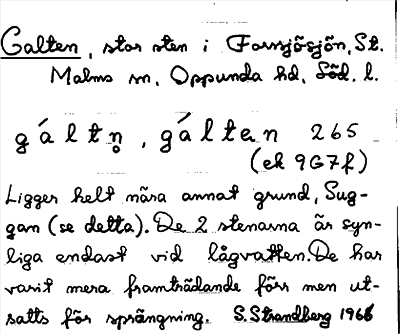 Galten, stor sten i Fornsjösjön, St.
Malms sn, Oppunda hd, Söd. l.
gáltn̥, gáltən 265
(ek 9G7f)
Ligger helt nära annat grund, Sug-
gan (se detta). De 2 stenarna är syn-
liga endast vid lågvatten. De har
varit mera framträdande förr men ut-
satts för sprängning. S. Strandberg 1966